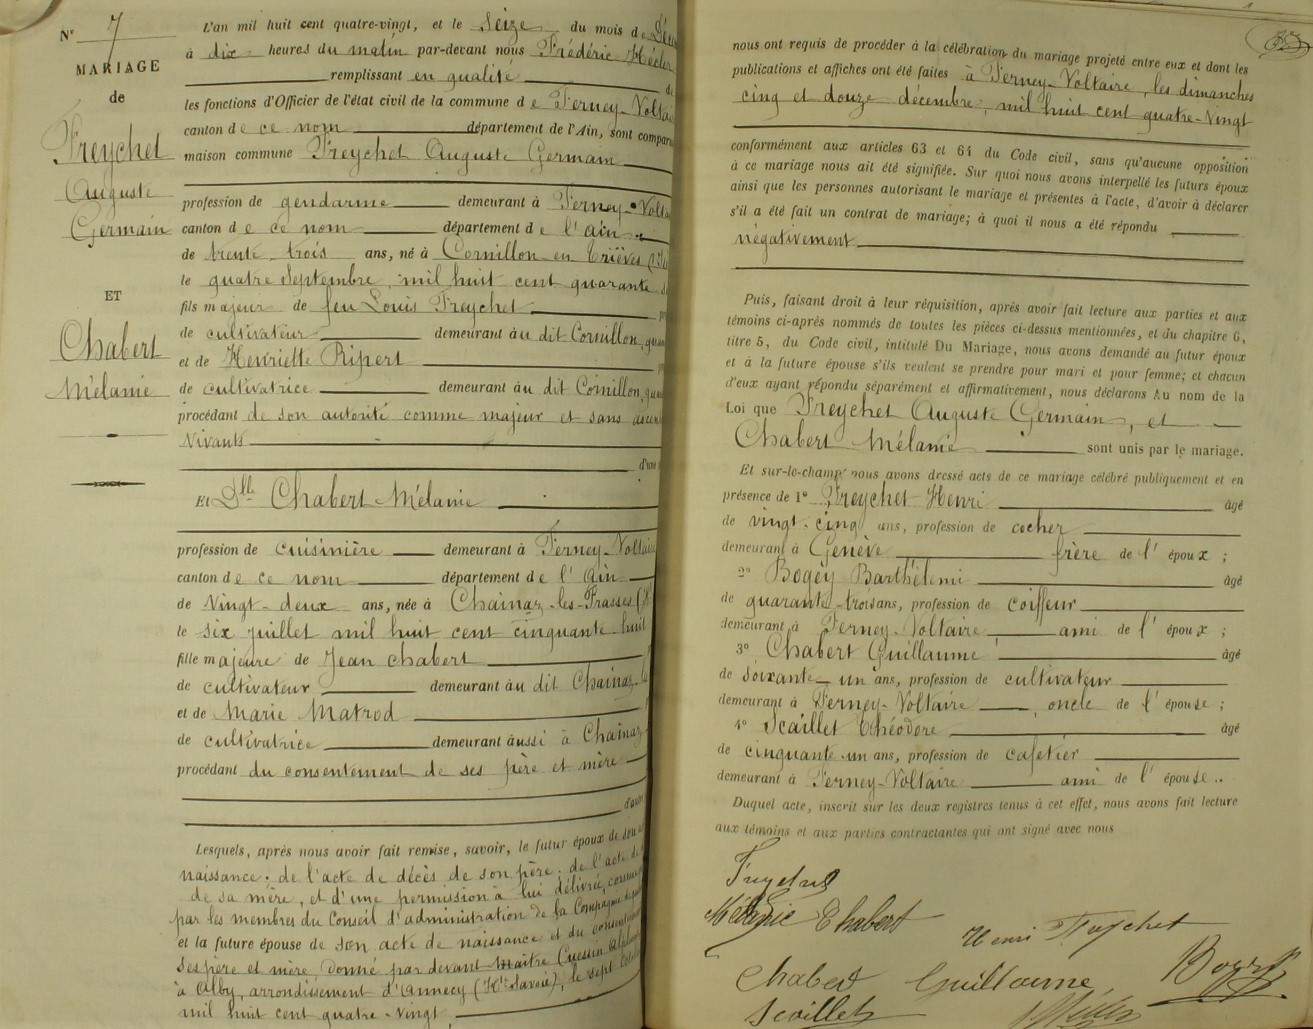 N° 7
MARIAGE
de
Freychet
Auguste
Germain
ET
Chabert
Mélanie
L'an mil huit cent quatre-vingt, et le Seize du mois de
à dix heures du matin par-devant nous Frédéric
remplissant en qualité
les fonctions d'Officier de l'état civil de la commune de Ferney-
canton de ce nom département de l'Ain, sont
maison commune Freychet Auguste Germain
profession de gendarme demeurant à Ferney-
canton de ce nom département de l'ain
de trente-trois ans, né à Cornillon en trièves
le quatre Septembre, mil huit cent quarante
fils majeur de feu Louis Freychet
de cultivateur demeurant au dit Cornillon,
et de Henriette Ripert
de cultivatrice demeurant au dit Cornillon,
procédant de son autorité comme majeur et sans
vivants
Et Dlle Chabert Mélanie
profession de cuisinière demeurant à Ferney-
canton de ce nom département de l'ain
de Vingt-deux ans, née à Chainaz-les-Frasses
le six juillet mil huit cent cinquante-huit
fille majeure de Jean Chabert
de cultivateur demeurant au dit Chainaz-
et de Marie Matrod
de cultivatrice demeurant aussi à Chainaz
procédant du consentement de ses père et mère
Lesquels, après nous avoir fait remise, savoir, le futur époux de son
naissance; de l'acte de décès de son père; de l'acte de
de sa mère, et d'une permission à lui délivrée,
par les membres du Conseil d'administration de la Compagnie
et la future épouse de son acte de naissance et du
ses père et mère donné par devant maître
à Alby, arrondissement d'Annecy (Hte Savoie), le sept
mil huit cent quatre-vingt
nous ont requis de procéder à la célébration du mariage projeté entre eux et dont les
publications et affiches ont été faites à Ferney-Voltaire, les dimanches
cinq et douze décembre, mil huit cent quatre-vingt
conformément aux articles 63 et 64 du Code civil, sans qu'aucune opposition
à ce mariage nous ait été signifiée. Sur quoi nous avons interpellé les futurs époux
ainsi que les personnes autorisant le mariage et présentes à l'acte, d'avoir à déclarer
s'il a été fait un contrat de mariage; à quoi il nous a été répondu
négativement
Puis, faisant droit à leur réquisition, après avoir fait lecture aux parties et aux
témoins ci-après nommés de toutes les pièces ci-dessus mentionnées, et du chapitre 6,
titre 5, du Code civil, intitulé Du Mariage, nous avons demandé au futur époux
et à la future épouse s'ils veulent se prendre pour mari et pour femme; et chacun
d'eux ayant répondu séparément et affirmativement, nous déclarons Au nom de la
Loi que Freychet Auguste Germain, et
Chabert Mélanie sont unis par le mariage.
Et sur-le-champ nous avons dressé acte de ce mariage célébré publiquement et en
présence de 1° Freychet Henri âgé
de vingt-cinq ans, profession de cocher
demeurant à Genève frère de l'époux;
2° Bogey Barthélemi âgé
de quarante-trois ans, profession de coiffeur
demeurant à Ferney-Voltaire ami de l'époux;
3° Chabert Guillaume âgé
de soixante-un ans, profession de cultivateur
demeurant à Ferney-Voltaire, oncle de l'épouse;
4° Scaillet Théodore âgé
de cinquante-un ans, profession de cafetier
demeurant à Ferney-Voltaire ami de l'épouse..
Duquel acte, inscrit sur les deux registres tenus à cet effet, nous avons fait lecture
aux témoins et aux parties contractantes qui ont signé avec nous
Mélanie Chabert
Henri Freychet
Chabert Guillaume